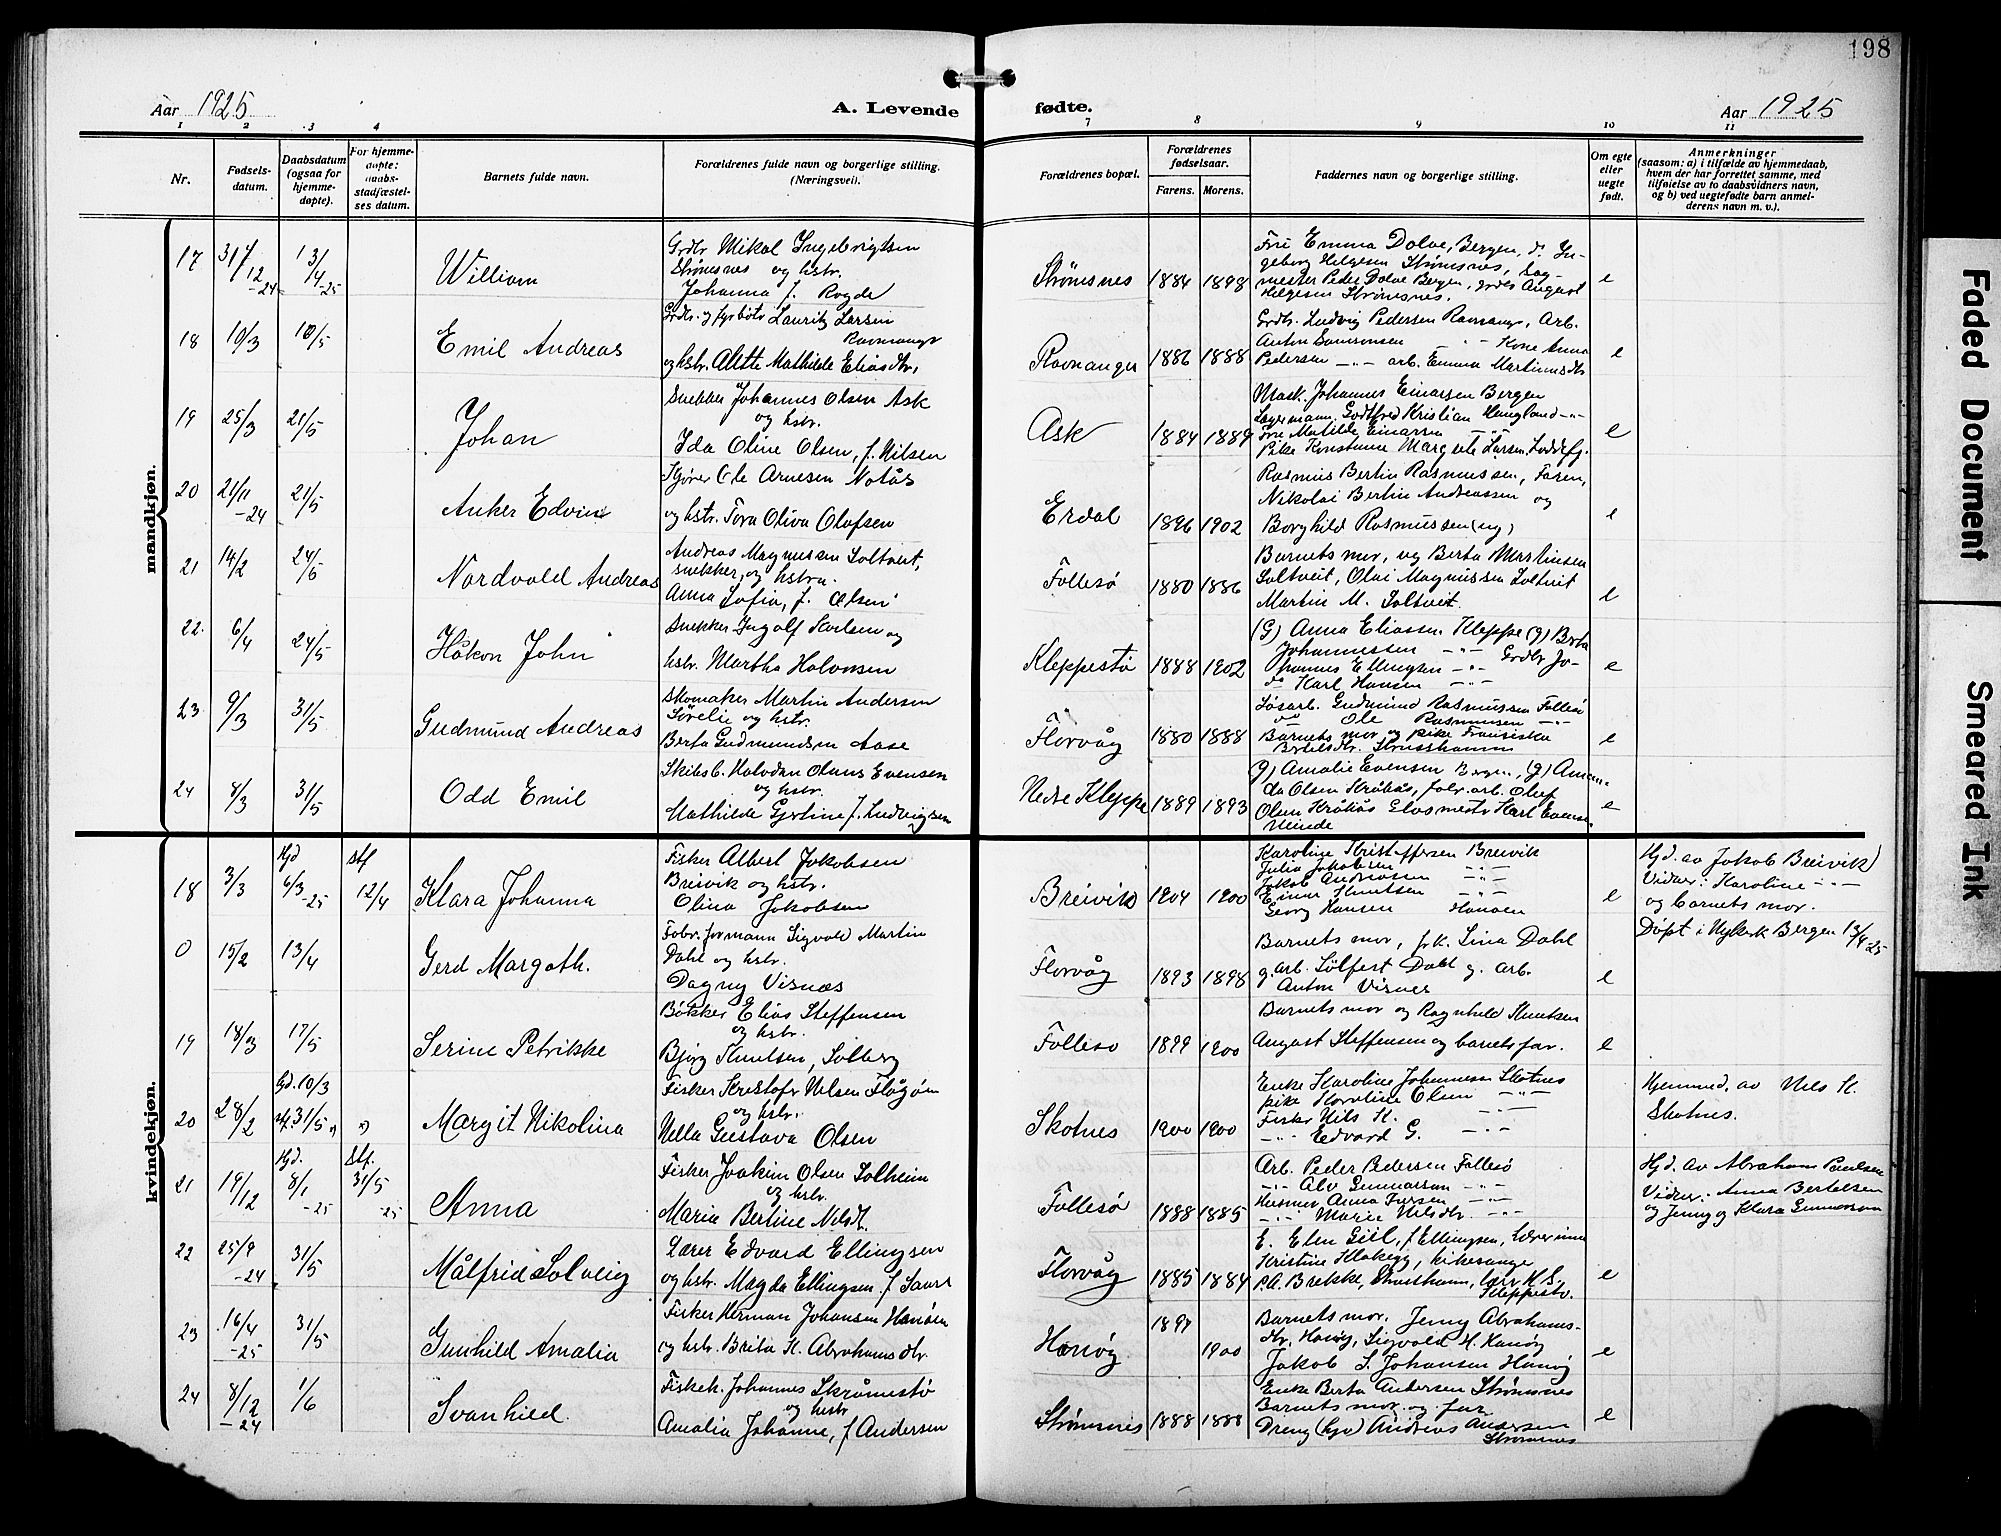 198
Aar 1925
A. Levende
fødte.
Aar 1925
1 2 3 4
7 8 9 10 11
Nr.
Fødsels-
datum.
Daabsdatum
(ogsaa for
hjemme-
døpte).
For hjemme-
døpte:
daabs-
stadfæstel-
ses datum.
Barnets fulde navn.
Forældrenes fulde navn og borgerlige stilling.
(Næringsvei).
Forældrenes bopæl.
Forældrenes
fødselsaar.
Farens. Morens.
Faddernes navn og borgerlige stilling.
Om egte
eller
uegte
født.
Anmerkninger
(saasom: a) i tilfælde av hjemmedaab,
hvem der har forrettet samme, med
tilføielse av to daabsvidners navn,
og b) ved uegtefødte barn anmel-
derens navn m. v.).
mandkjøn.
17 31/12-24 13/4-25 William
Grdbr Mikal Ingebrigtsen
Strømsnes og hstr.
Johanna f. Rogde
Strømsnes 1884 1898
Fru Emma Dolve, Bergen, d. In-
geborg Helgesen Strømsnes, Log-
mester Peder Dolve Bergen, grdbr August
Helgesen Strømsnes.
e
18 10/3 10/5 Emil Andreas
Grdbr. og fyrbøter Lauritz Larsen
Ravnanger
og hstr. Alette Mathilde Eliasdtr.
Ravnanger 1886 1888
Grdbr. Ludvig Pedersen Ravnanger, Arb.
Anton Samsonsen -"- Kone Anna
Pedersen -"- arb. Emma Martinusdtr
e
19 25/3 21/5 Johan
Snekker Johannes Olsen Ask
og hstr.
Ida Oline Olsen, f. Nilsen
Ask 1884 1889
Mask. Johannes Einarsen Bergen
Lagermann Godtfred Kristian Haugland -"-
Fru Matilde Einarsen -"-
Pike Konstanse Margrete Larsen, Loddefj.
e
20 21/11-24 21/5 Anker Edvin
Kjører Ole Arnesen Notås
og hstr. Tora Oliva Olafsen
Erdal 1896 1902
Rasmus Bertin Rasmussen, Faren,
Nikolai Bertin Andreassen og
Borghild Rasmussen (ug)
e
21 14/2 24/5 Nordvald Andreas
Andreas Magnussen Soltveit,
snekker, og hstru.
Anna Sofia, f. Olsen
Follesø 1880 1886
Barnets mor, ug Berta Martinsen
Soltveit, Olai Magnussen Soltveit
Martin M. Soltveit.
e
22. 6/4 24/5 Håkon John
Snekker Ingolf Karlsen og
hstr. Martha Halvorsen
Kleppestø 1888 1902
(G) Anna Eliassen Kleppe (g) Berta
Johannessen -"- Grdbr Jo-
hannes Ellingsen -"-
do Karl Hansen -"-
e
23 9/3 31/5 Gudmund Andreas
Skomaker Martin Andersen
Sørelie og hstr.
Berta Gudmundsen Aase
Florvåg 1880 1888
Løsarb. Gudmund Rasmussen Follesø
do Ole Rasmussen -"-
Barnets mor og pike Fransiska
Bertelsdtr. Strusshamn
e
24 8/3 31/5 Odd Emil
Skibsb. Halvdan Olaus Evensen
og hstr.
Mathilde Gjertine f. Ludvigsen
Nedre Kleppe 1889 1893
g) Amalie Evensen Bergen, (g) Aman-
da Olsen Kråkås, fabr.arb. Oluf
Olsen Kråkås Glasmester Karl Evens.
Minde
e
kvindekjøn.
18 3/3 Hjd 6/3-25 Stf 12/4 Klara Johanna
Fisker Albert Jakobsen
Breivik og hstr.
Olina Jakobsen
Breivik 1904 1900
Karoline Kristoffersen Breivik
Julia Jakobsen -"-
Jakob Andreassen -"-
Einar Knutsen -"-
Georg Hansen Hanøen
e
Hjd. av Jakob Breivik)
Vidner: Karoline -"-
og barnets mor.
0 15/2 13/4 Gerd Margoth.
Fabr.formann Sigvald Martin
Dahl og hstr.
Dagny Visnæs
Florvåg 1893 1898
Barnets mor, frk. Lina Dahl
g. arb. Sølfest Dahl g. arb.
Anton Visnes
e
Døpt i Nykirk Bergen 13/4 25
19 18/3 17/5 Serine Petrikke
Bøkker Elias Steffensen
og hstr.
Bjørg Knutsen, Solberg
Follesø 1899 1900
Barnets mor og Ragnhild Knutsen
August Steffensen og barnets far.
e
20 28/2 Gd. 10/3 stf. 31/5 Margit Nikolina
Fisker Kristofer Nilsen Flågøen
og hstr.
Nella Gustava Olsen
Skotnes 1900 1900
Enke Karoline Johannessen Skotnes
pike Karoline Olsen -"-
Fisker Nils K. -"-
-"- Edvard G. -"-
Hjemmed. av Nils K.
Skotnes.
21 19/12 Hjd. 8/1-25 Stf. 31/5-25 Anna
Fisker Joakim Olsen Solheim
og hstr.
Maria Bertine Nilsdt.
Follesø 1888 1885
Arb. Peder Pedersen Follesø
-"- Alv Gunnarson -"-
Husmor Anna Iversen -"-
-"- Marie Nilsdtr. -"-
Hjd. av Abraham Paulsen
Vidner: Anna Bertelsen
og Jenny og Klara Gunnarson
22 25/9-24 31/5 Målfrid Solveig
Lærer Edvard Ellingsen
og hstr. Magda Ellingsen f
Florvåg 1885 1884
E. Elen Gill, f Ellingsen, Lærerinne
Kristine Klakegg, kirkesanger
P.A. Brekke, Strusshamn, lærer K.S.
Kleppestø.
e
23 16/4-25 31/5 Gunhild Amalia
Fisker Herman Johansen Hanøen
og hstr. Brita K. Abrahamsdtr.
Hanøy 1897 1900
Barnets mor. Jenny Abrahams-
dtr, Hanøy, Sigvald H. Hanøy
Jakob S. Johansen Hanøy
e
24 8/12-24 1/6 Svanhild.
Fiskeh. Johannes Skråmestø
og hstr
Amalia Johanne, f Andersen
Strømsnes 1888 1888
Enke Berta Andersen Strømsnes
Barnets mor og far
Dreng Andreas Andersen
Strømsnes
e
Faded Document
Smeared Ink